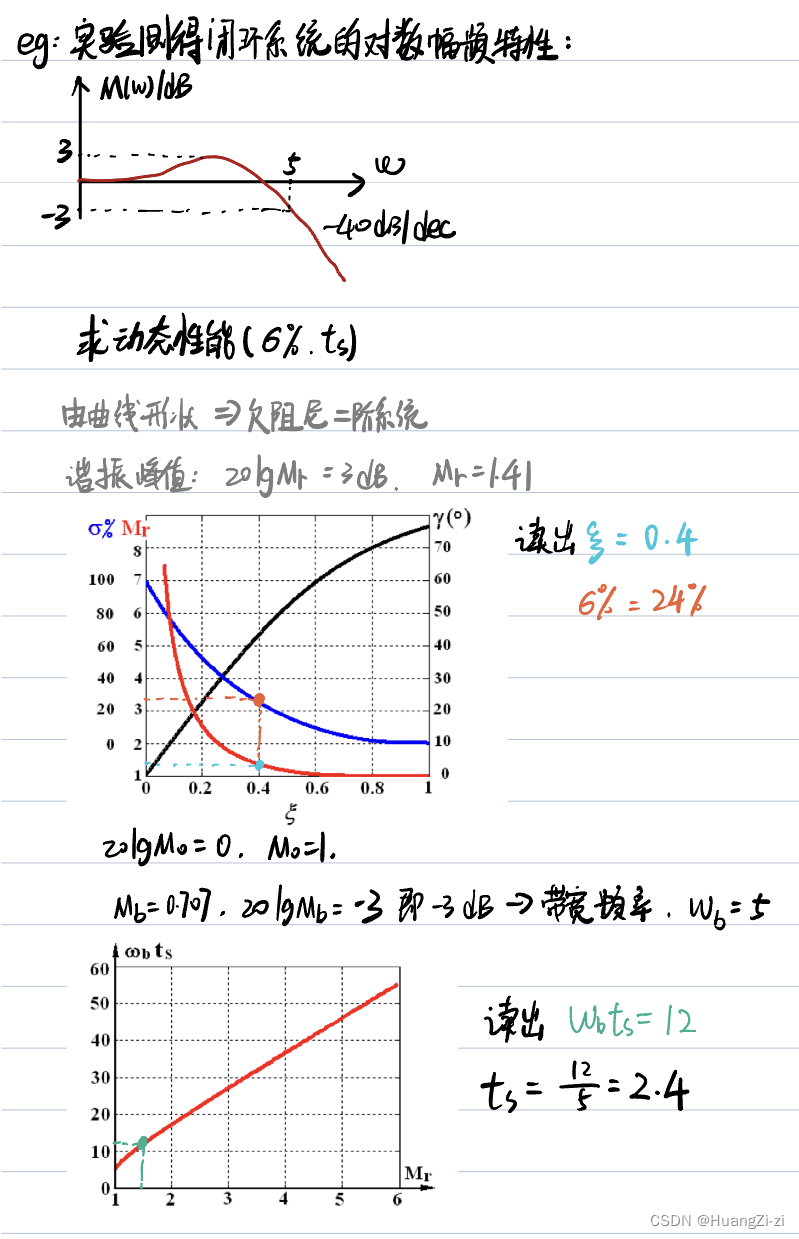 eg: 实验测得闭环系统的对数幅频特性:
M(w)/dB
3
5
w
-3
-40dB/dec
求动态性能(6%.ts)
由曲线形状 => 欠阻尼二阶系统
谐振峰值: 20lgMr = 3dB. Mr=1.41
σ% Mr
γ(°)
8
70
100 7
60
80 6
50
60 5
40
40 4
30
20 3
20
0 2
10
1
0
0 0.2 0.4 0.6 0.8 1
ξ
读出 ξ = 0.4
6% = 24%
20lgM0=0. M0=1.
Mb=0.707. 20lgMb=-3 即 -3dB -> 带宽频率. Wb=5
ωb ts
60
50
40
30
20
10
0
1 2 3 4 5 6
Mr
读出 Wbts=12
ts = 12/5 = 2.4
CSDN @HuangZi-zi